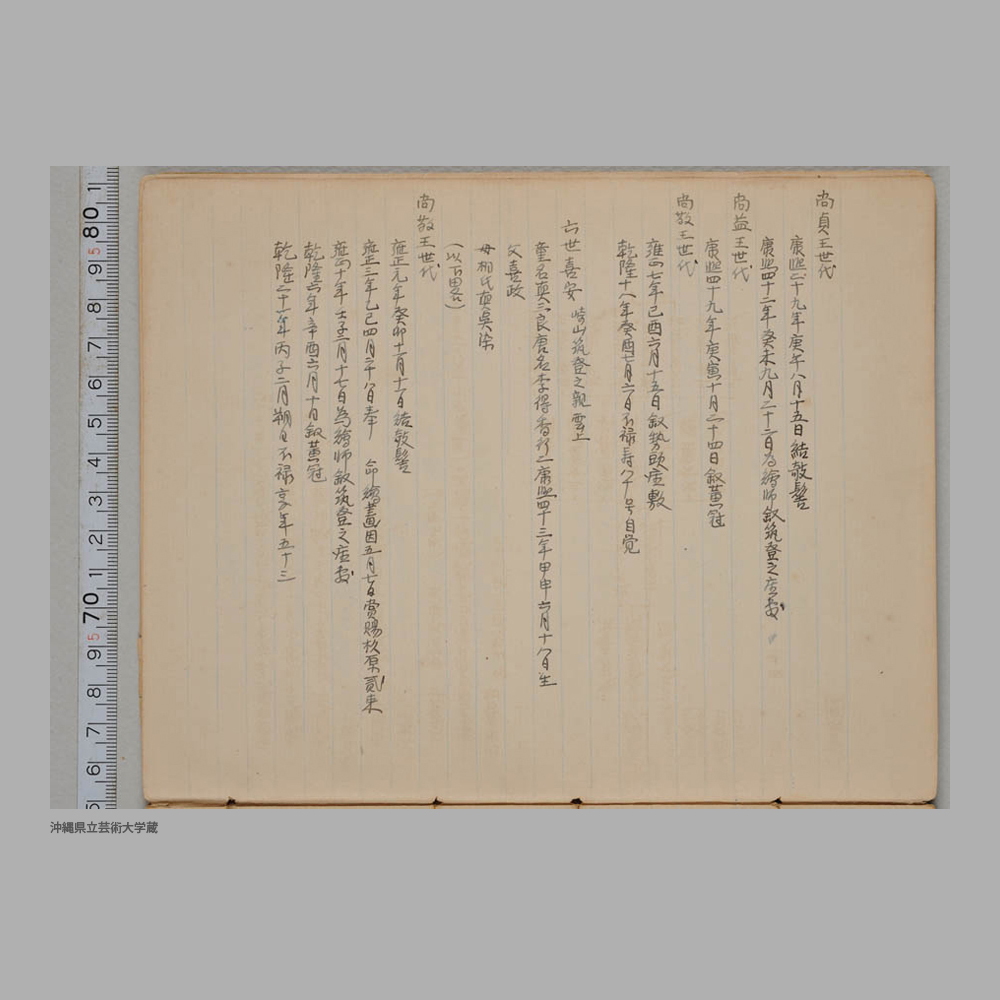 尚貞王世代
康熙二十九年庚午八月十五日結敧髻
康熙四十二年癸未九月二十二日為繪師叙筑登之座敷
尚益王世代
康熙四十九年庚寅十月二十四日叙黄冠
尚敬王世代
雍正七年己酉六月十五日叙勢頭座敷
乾隆十八年癸酉七月六日不禄寿八十号自覚
六世喜安 崎山筑登之親雲上
童名真三良唐名李得香行二康熙四十三年甲申六月十八日生
父喜政
母柳氏真呉
(以下畧)
尚敬王世代
雍正元年癸卯十二月十一日結敧髻
雍正三年乙巳四月二十八日奉 命繪画因五月七日賞賜杉原貳束
雍正十年壬子三月十七日為繪師叙筑登之座敷
乾隆六年辛酉六月十日叙黄冠
乾隆二十一年丙子二月朔日不禄享年五十三
80
70
沖縄県立芸術大学蔵